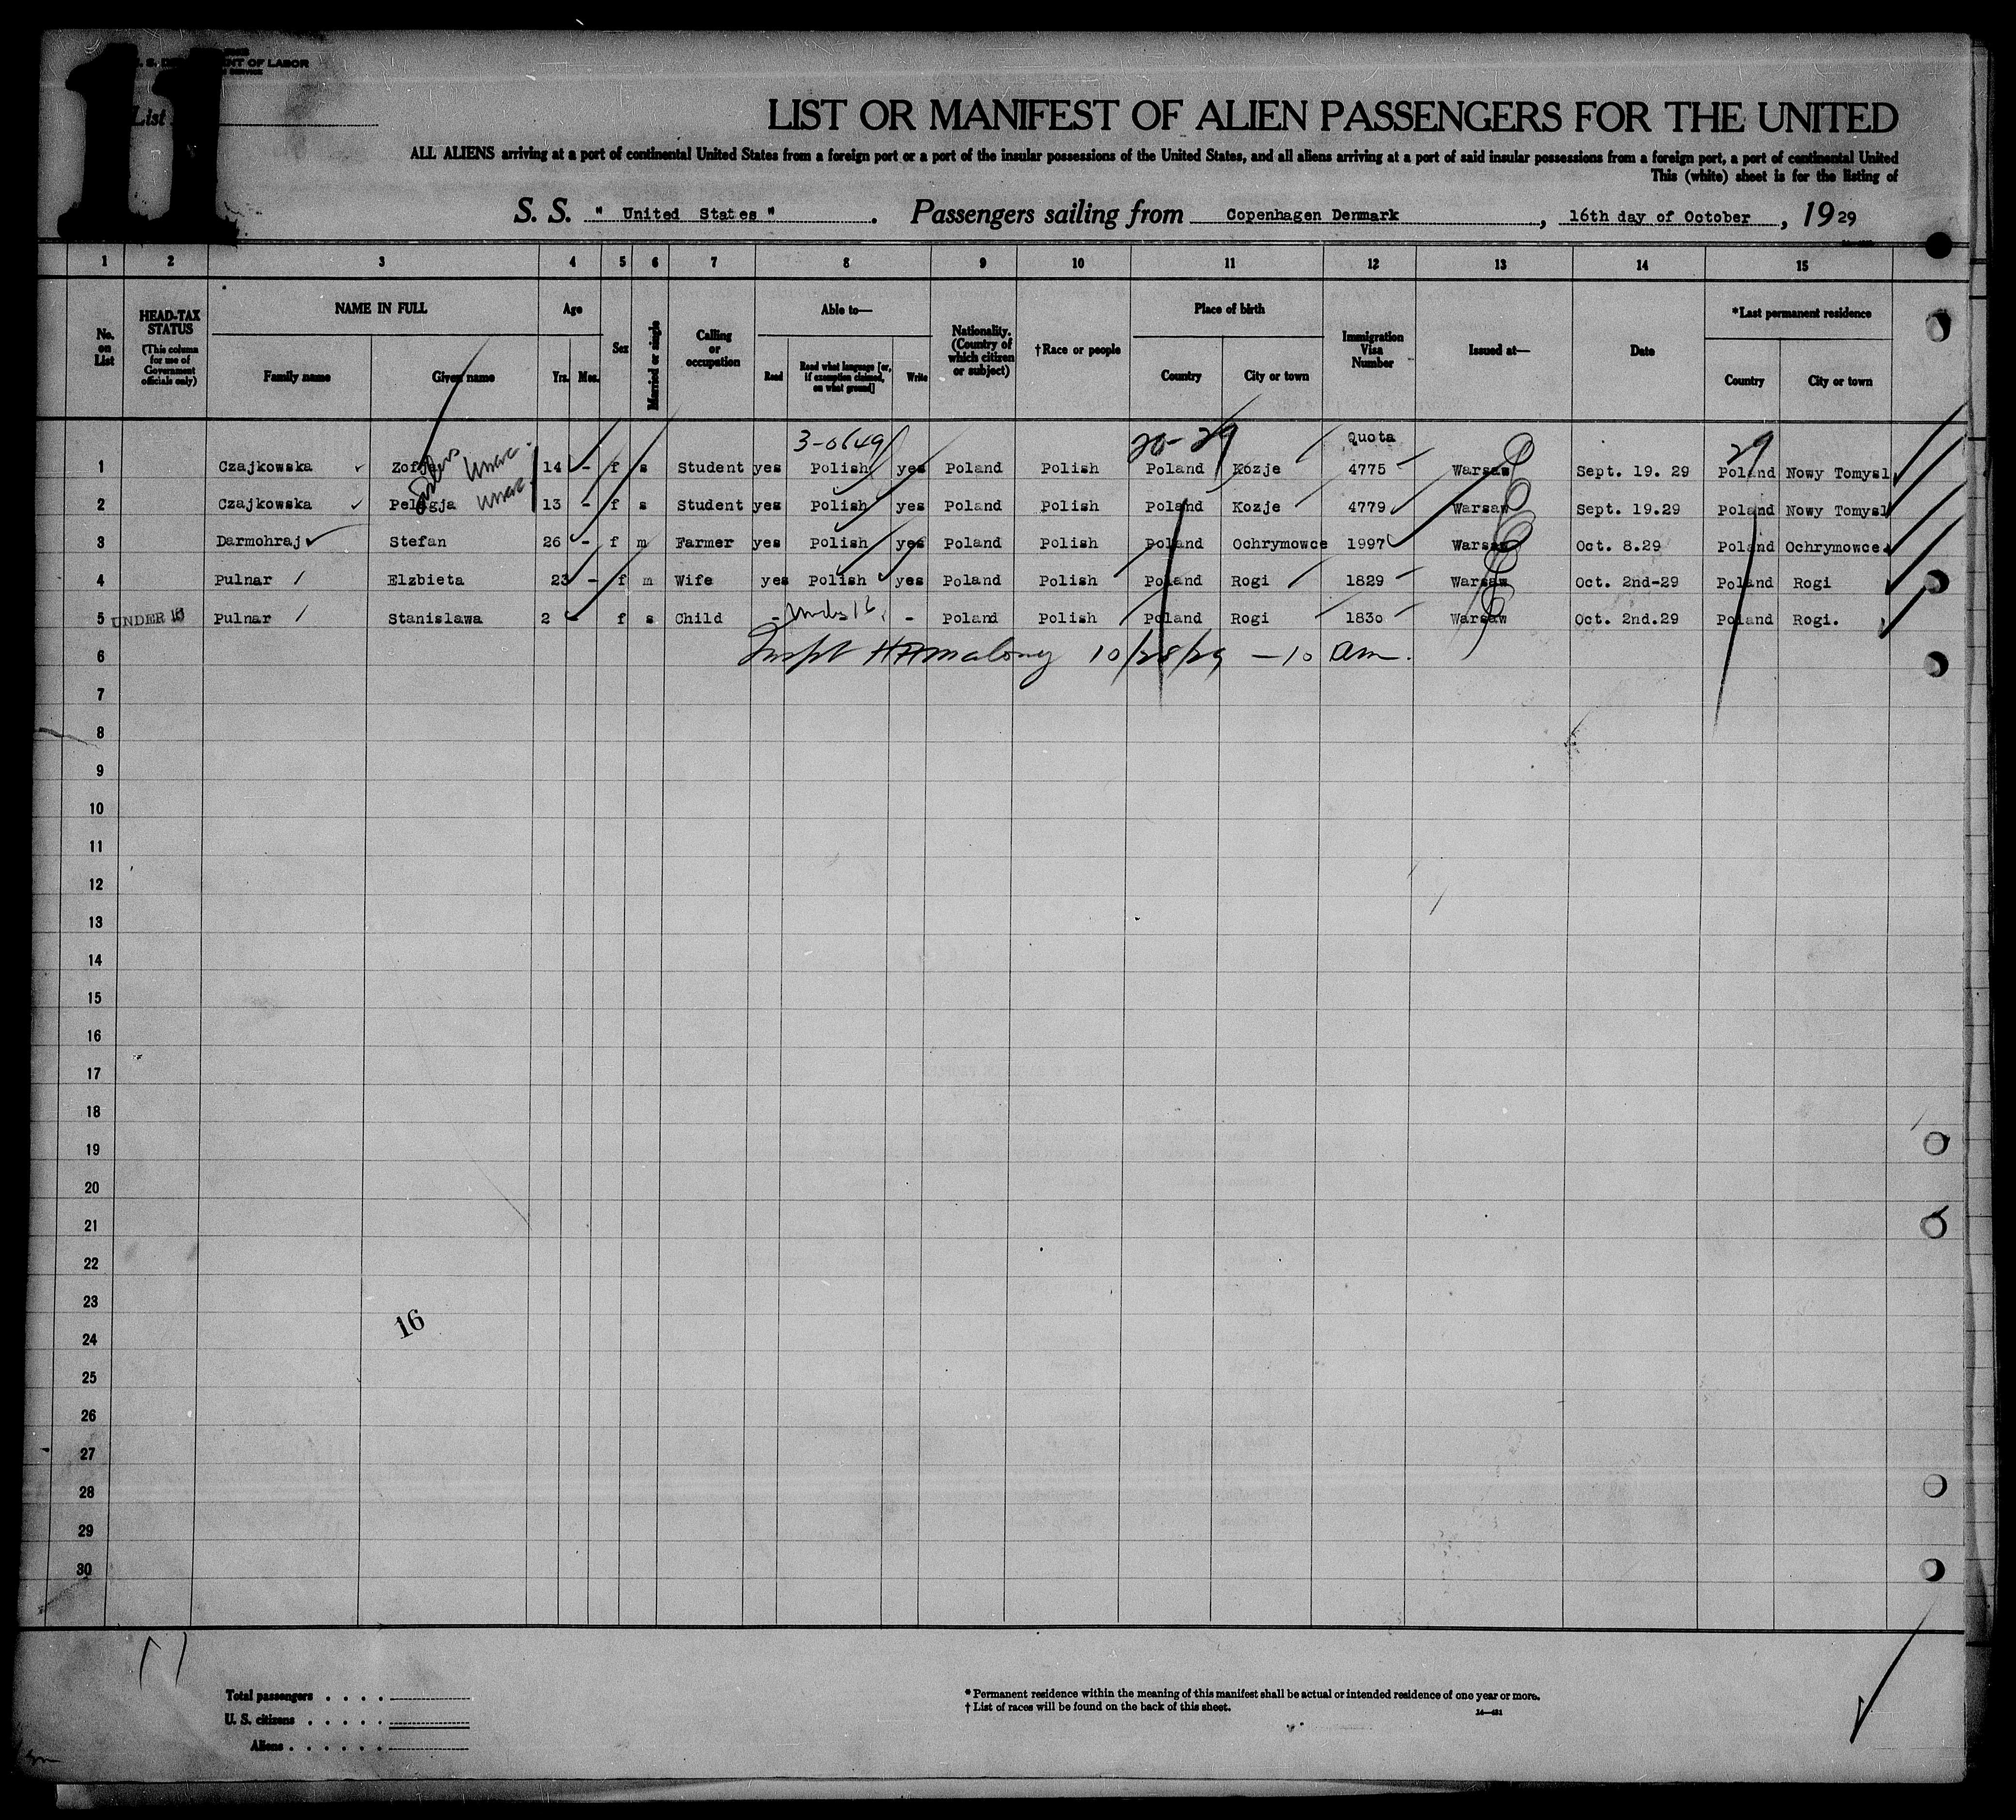 11
U. S. DEPARTMENT OF LABOR
List
LIST OR MANIFEST OF ALIEN PASSENGERS FOR THE UNITED
ALL ALIENS arriving at a port of continental United States from a foreign port or a port of the insular possessions of the United States, and all aliens arriving at a port of said insular possessions from a foreign port, a port of continental United
This (white) sheet is for the listing of
S. S. " United States " . Passengers sailing from Copenhagen Denmark , 16th day of October , 19 29
1 2 3 4 5 6 7 8 9 10 11 12 13 14 15
No. on List
HEAD-TAX STATUS (This column for use of Government officials only)
NAME IN FULL Family name Given name
Age Yrs. Mos.
Sex
Married or single
Calling or occupation
Able to— Read Read what language [or, if exemption claimed, on what ground] Write
Nationality. (Country of which citizen or subject)
†Race or people
Place of birth Country City or town
Immigration Visa Number
Issued at—
Date
*Last permanent residence Country City or town
3-0649 20-29 Quota 29
1 Czajkowska Zofja 14 - f s Student yes Polish yes Poland Polish Poland Kozje 4775 Warsaw Sept. 19. 29 Poland Nowy Tomysl
Sisters
2 Czajkowska Pelagja 13 - f s Student yes Polish yes Poland Polish Poland Kozje 4779 Warsaw Sept. 19.29 Poland Nowy Tomysl
3 Darmohraj Stefan 26 - f m Farmer yes Polish yes Poland Polish Poland Ochrymowce 1997 Warsaw Oct. 8.29 Poland Ochrymowce
4 Pulnar Elzbieta 23 - f m Wife yes Polish yes Poland Polish Poland Rogi 1829 Warsaw Oct. 2nd-29 Poland Rogi
5 UNDER 16 Pulnar Stanislawa 2 - f s Child - Under 16 - Poland Polish Poland Rogi 1830 Warsaw Oct. 2nd.29 Poland Rogi.
6 Inspt HAMalony 10/28/29 — 10 am.
7
8
9
10
11
12
13
14
15
16
17
18
19
20
21
22
23
16
24
25
26
27
28
29
30
Total passengers . . . .
U. S. citizens . . . . .
Aliens . . . . . .
* Permanent residence within the meaning of this manifest shall be actual or intended residence of one year or more.
† List of races will be found on the back of this sheet.
14—421